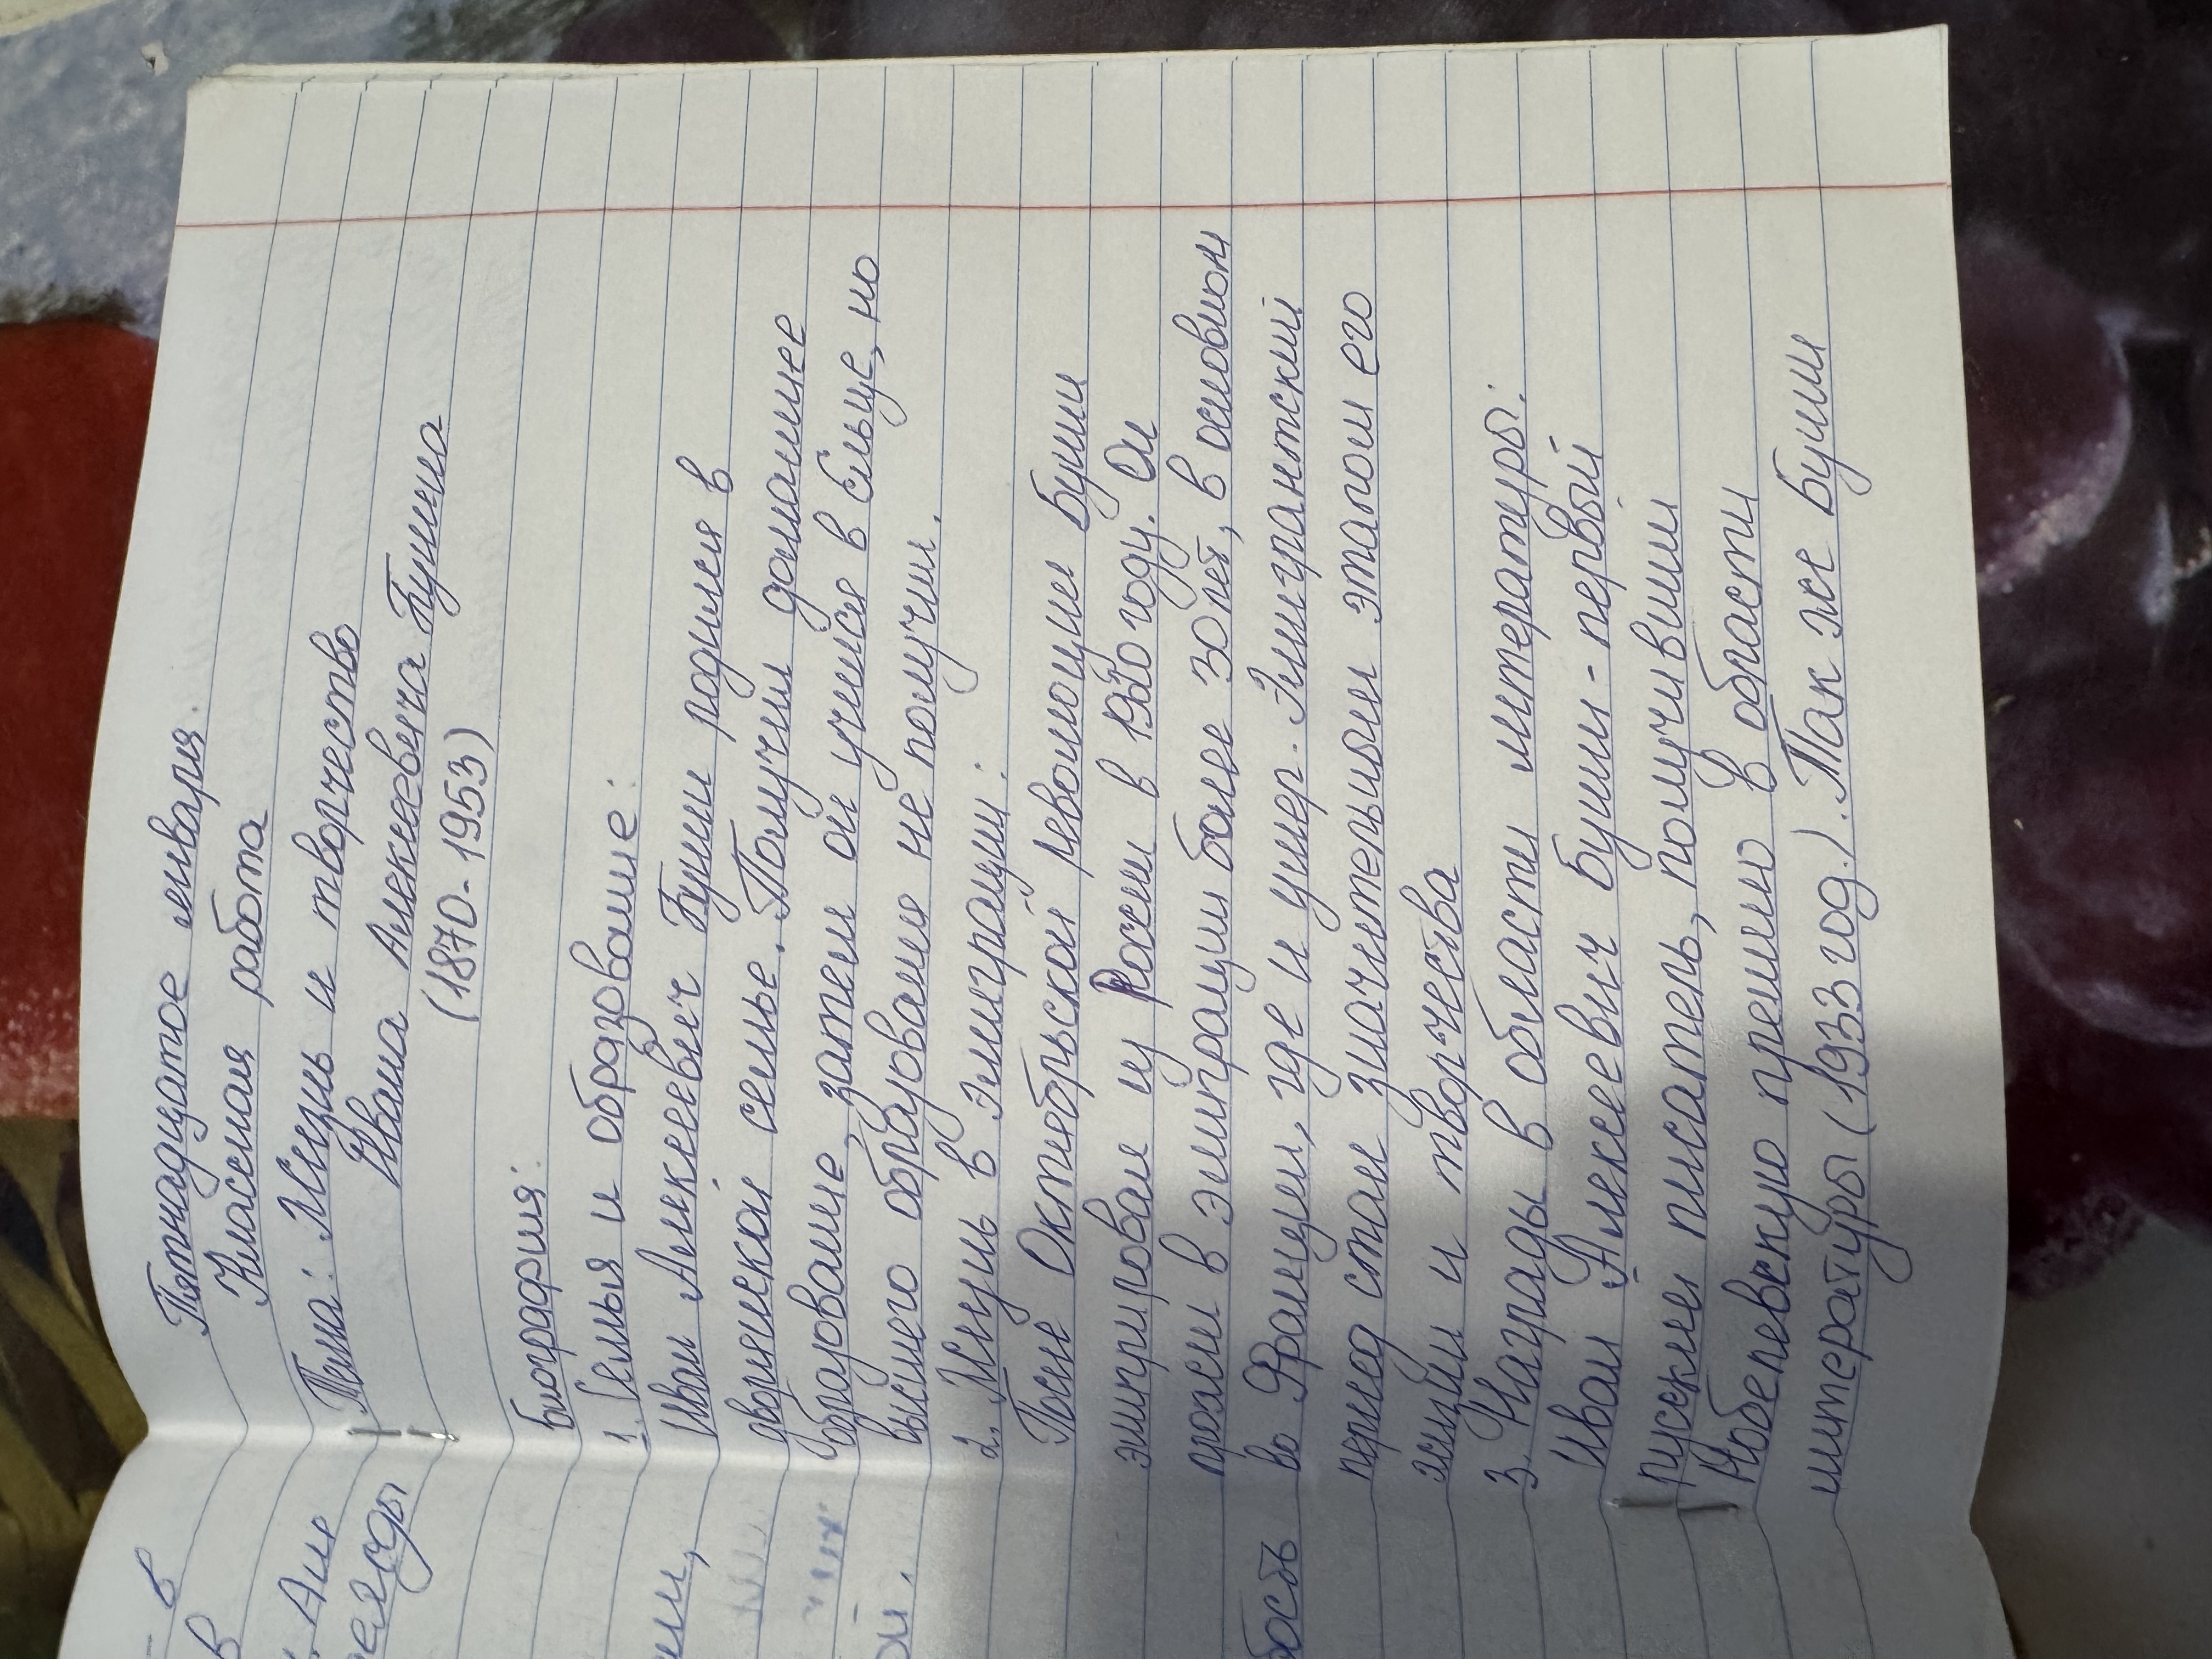 Пятнадцатое января.
Класная работа
Тема: Жизнь и творчество
Ивана Алексеевича Бунина
(1870-1953)
биография:
1. Семья и образование:
Иван Алексеевич Бунин родился в
дворянской семье. Получил домашнее
образование, затем он учился в Ельце, но
высшего образование не получил.
2. Жизнь в эмиграции:
После Октябрьской революции Бунин
эмигрировал из Росии в 1920 году. Он
прожил в эмиграции более 30 лет, в основном
во Франции, где и умер. Эмигрантский
период стал значительным этапом его
жизни и творчества
3. Награды в области литературы:
Иван Алексеевич Бунин - первый
руский писатель, получивший
Нобелевскую премию в области
литературы (1933 год.). Так же Бунин
в
в
. Але
бость
ой.